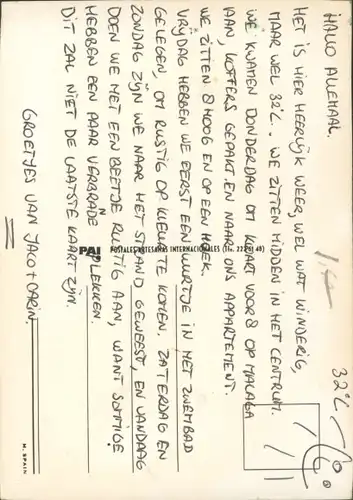 HALLO ALLEMAAL.
HET IS HIER HEERLIJK WEER, WEL WAT WINDERIG,
MAAR WEL 32°C. WE ZITTEN MIDDEN IN HET CENTRUM.
WE KWAMEN DONDERDAG OM KWART VOOR 8 OP MALAGA
AAN, KOFFERS GEPAKT EN NAAR ONS APPARTEMENT.
WE ZITTEN 8 HOOG EN OP EEN HOEK.
VRIJDAG HEBBEN WE EERST EEN UURTJE IN HET ZWEMBAD
GELEGEN, OM RUSTIG OP KLEUR TE KOMEN. ZATERDAG EN
ZONDAG ZIJN WE NAAR HET STRAND GEWEEST, EN VANDAAG
DOEN WE HET EEN BEETJE RUSTIG AAN, WANT SOMMIGE
HEBBEN EEN PAAR VERBRANDE PLEKKEN.
DIT ZAL NIET DE LAATSTE KAART ZIJN.
GROETJES VAN JACO + CARIN.
32°C
POSTALES ARTESANAS INTERNACIONALES
SPAIN